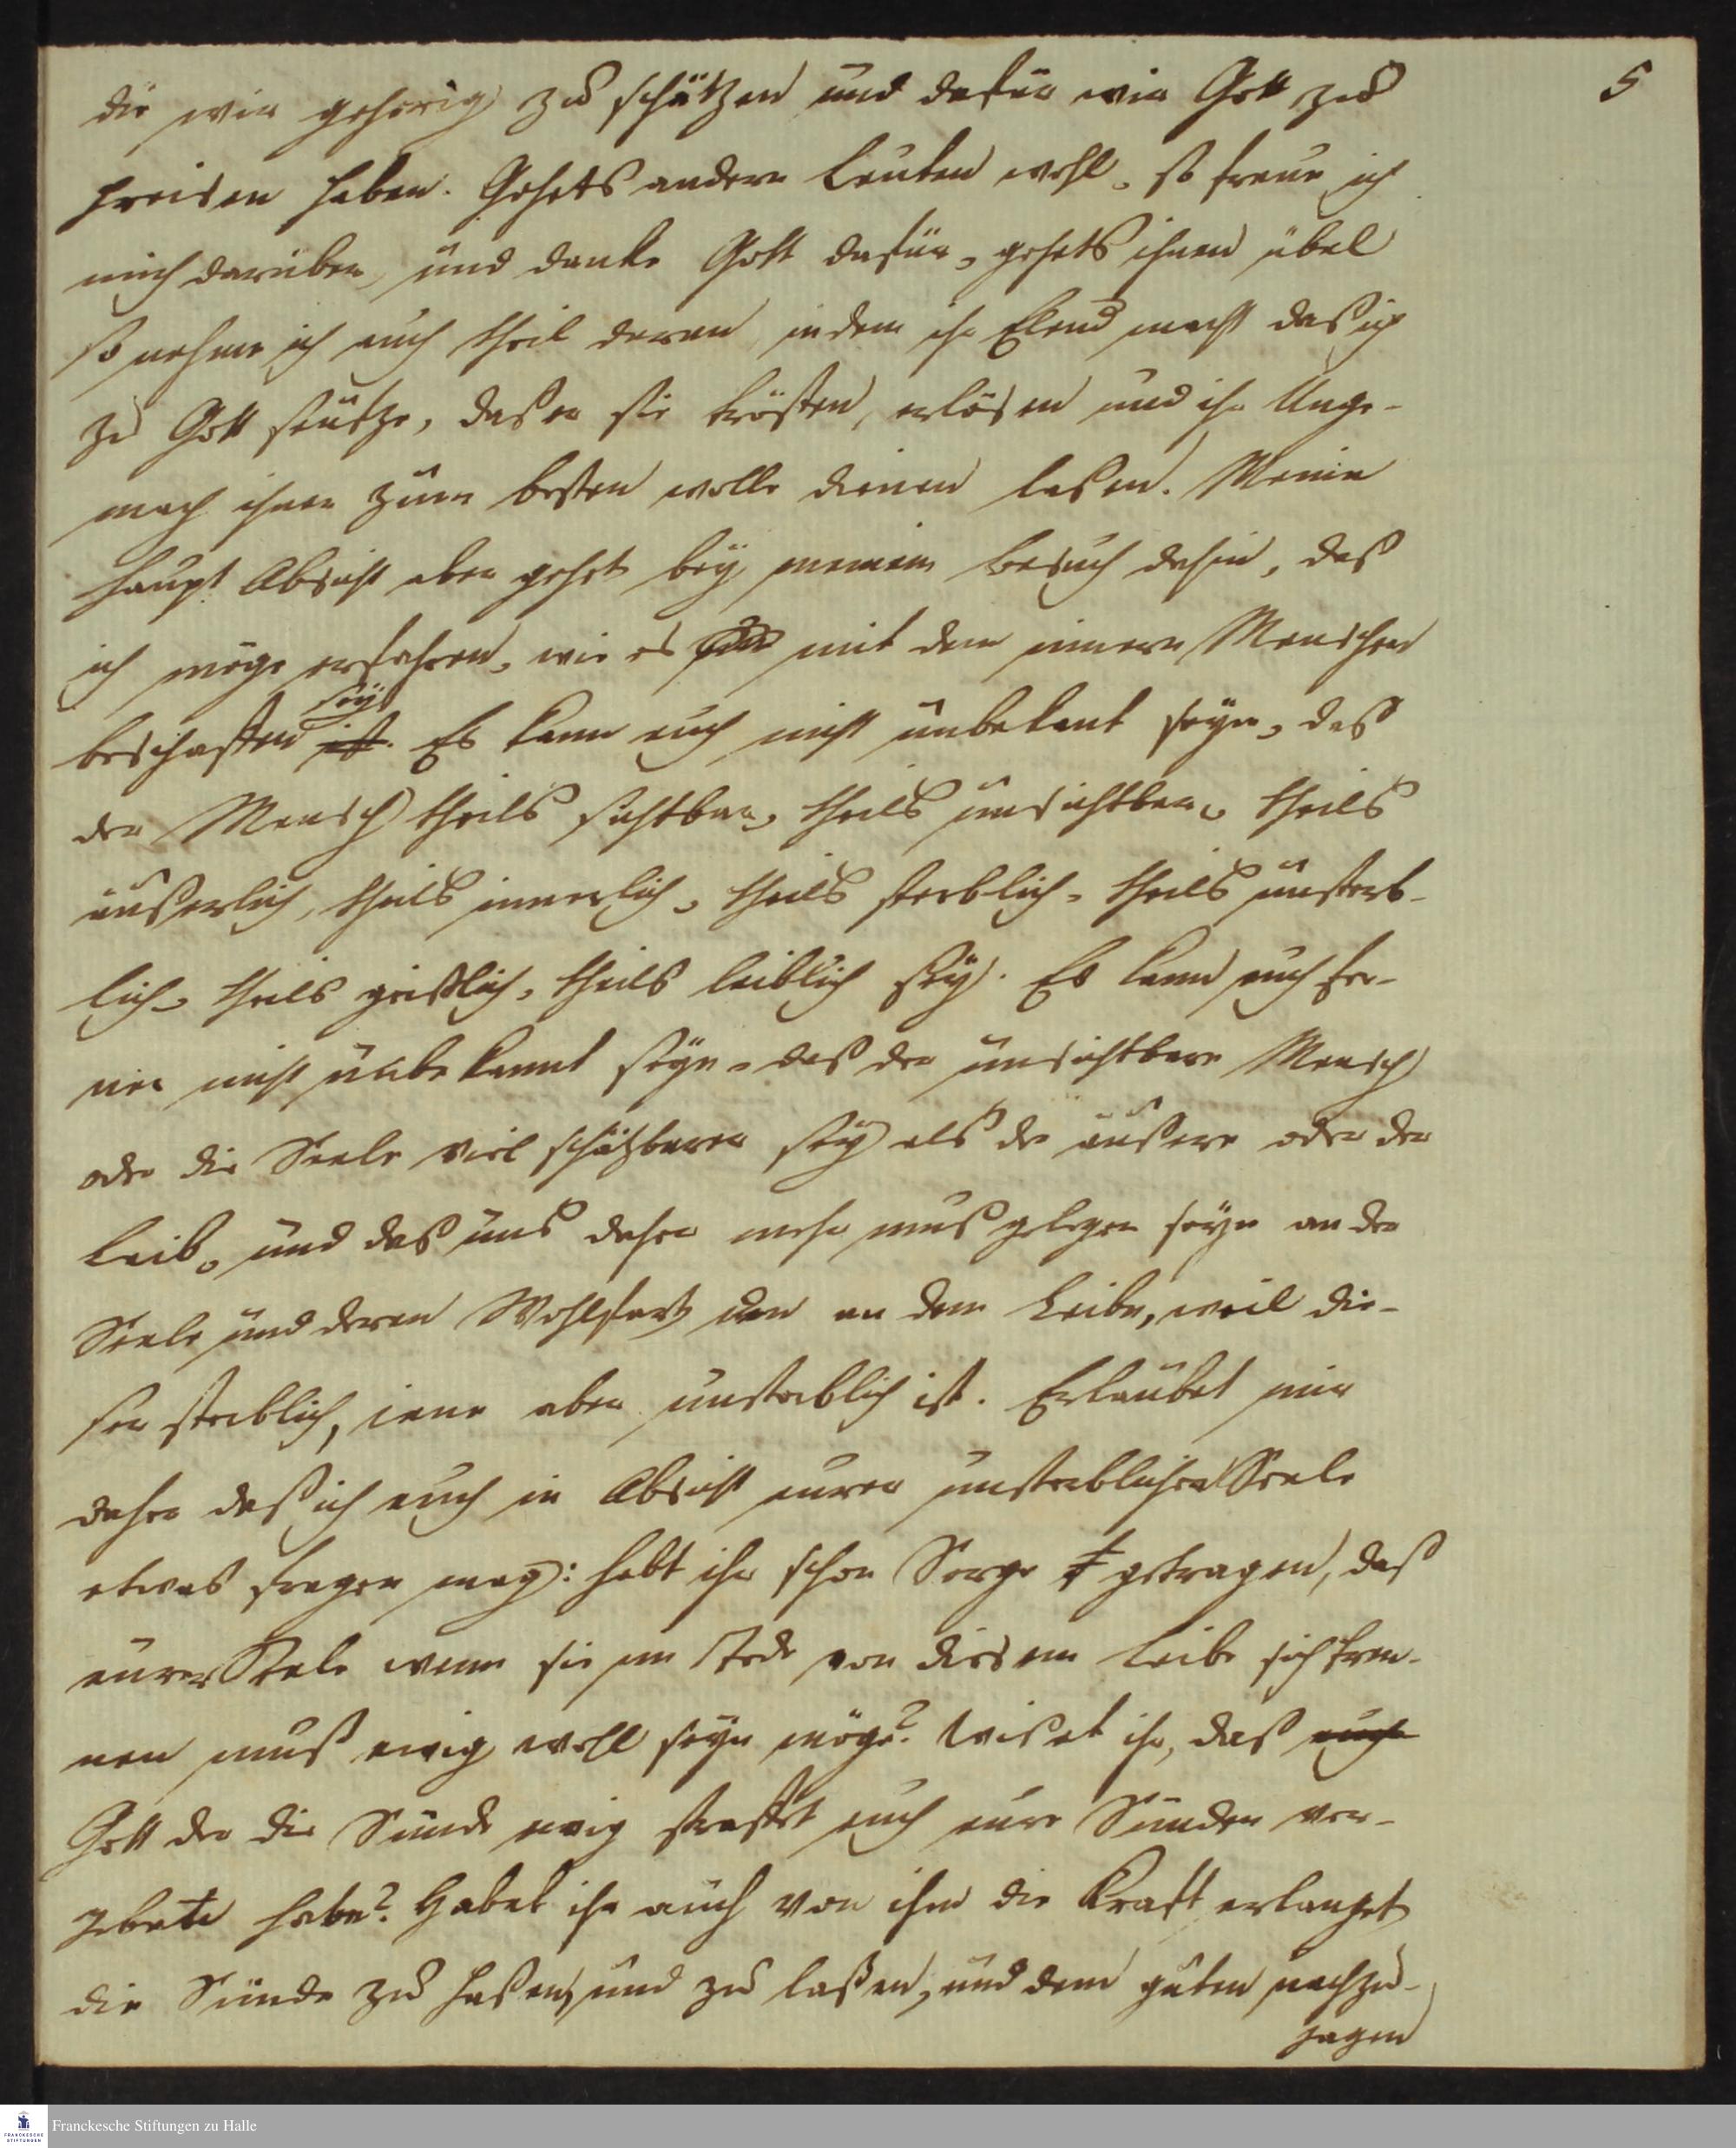 5
die wir gehorig zu schätzen und dafür wir Gott zu
preisen haben. Gehets andern Leuten wohl, so freue ich
mich darüber, und danke Gott dafür, gehets ihnen übel
so nehme ich auch theil daran, indem ihr Elend macht daß ich
zu Gott seufze, daß er sie trösten, erlösen und ihr Unge-
mach ihnen zum besten wolle dienen laßen. Meine
haupt Absicht aber gehet bey meinem besuch dahin, daß
ich möge erfahren, wie es mit dem innern Menschen
beschaffen ist sey. Es kann euch nicht unbekant seyn, daß
der Mensch theils sichtbar, theils unsichtbar, theils
äußerlich, theils innerlich, theils sterblich, theils unsterb-
lich, theils geistlich, theils leiblich sey. Es kann euch fer-
ner nicht unbekannt seyn, daß der unsichtbare Mensch
oder die Seele viel schätzbarer sey als der äußere oder der
Leib, und daß uns daher mehr muß gelegen seyn an der
Seele und deren Wohlfart, den an dem Leibe, weil die-
ser sterblich, iene aber unsterblich ist. Erlaubet mir
daher daß ich euch in Absicht eurer unsterblichen Seele
etwas fragen mag: habt ihr schon Sorge getragen, daß
eurer Seele wenn sie im Tode von diesem Leibe sich tren-
nen muß ewig wohl seyn möge? Wißet ihr, daß euch
Gott der die Sünde ewig straffet euch eure Sünden ver-
geben habe? Habet ihr auch von ihm die Kraft erlanget
die Sünde zu haßen, und zu laßen, und dem guten nachzu-
jagen
Franckesche Stiftungen zu Halle
FRANCKESCHE
STIFTUNGEN